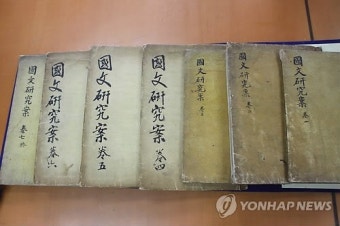 國文硏究案 卷七終
國文硏究案 卷六
國文硏究案 卷五
國文硏究案 卷四
國文硏究案 卷三
國文硏究案 卷二
國文硏究案 卷一
YONHAP NEWS